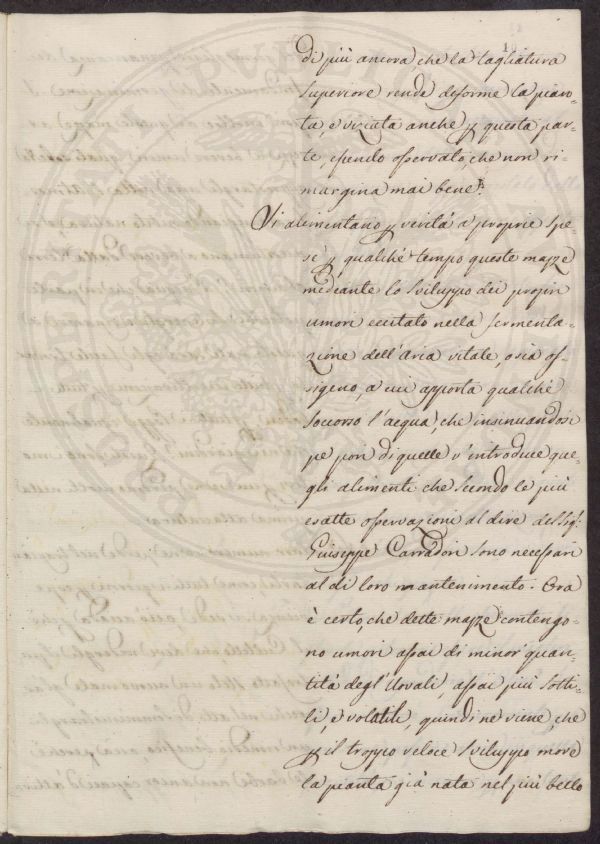 10
di più ancora che la tagliatura
superiore rende deforme la pian-
ta è viziata anche p questa par-
te, essendo osservato, che non ri-
margina mai bene.
Si alimentano p verità a proprie spe-
se p qualche tempo queste mazze
mediante lo sviluppo dei proprii
umori eccitato nella fermenta-
zione dell'Aria vitale, o sia os-
sigeno, a cui apporta qualche
soccorso l'acqua, che insinuandosi
pe pori di quelle v'introduce que-
gli alimenti che secondo le più
esatte osservazioni al dire del Sig:
Guiseppe Carradori sono necessari
al di loro mantenimento. Ora
è certo, che dette mazze contengo-
no umori assai di minor quan-
tità degl'Uovali, assai più sotti-
li, e volatili, quindi ne viene, che
p il troppo veloce sviluppo more
la pianta già nata nel più bello